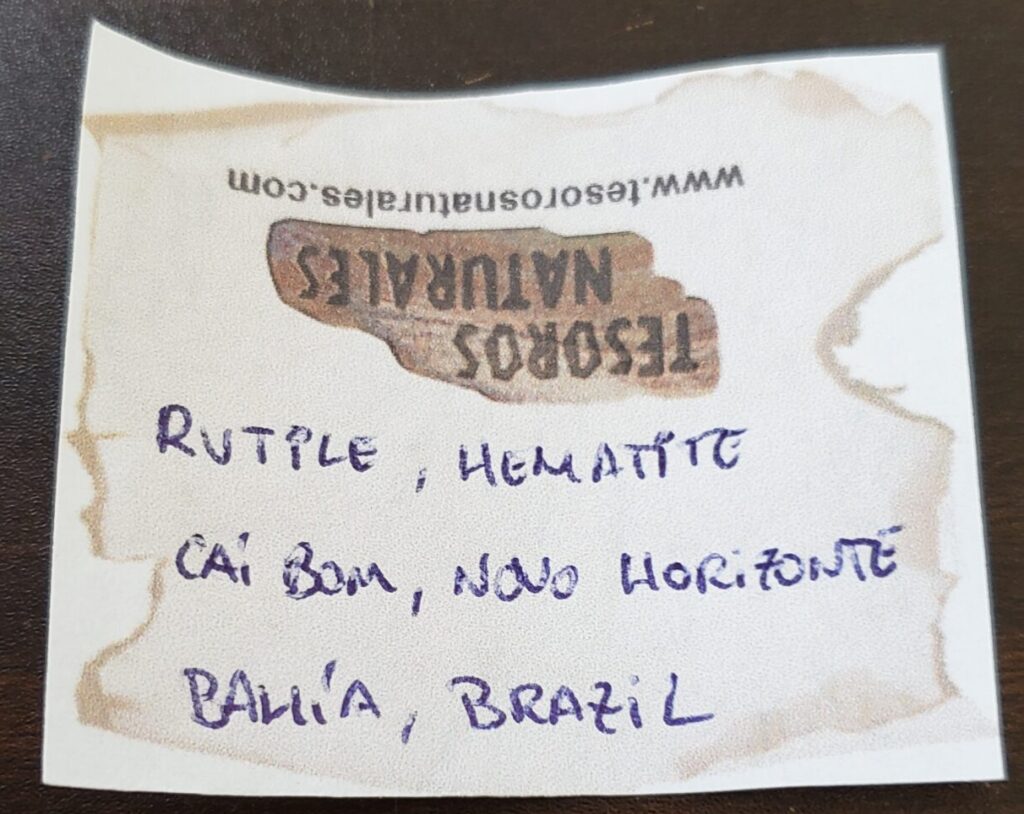 www.tesorosnaturales.com
TESOROS
NATURALES
RUTILE, HEMATITE
CAI BOM, NOVO HORIZONTE
BAHÍA, BRAZIL